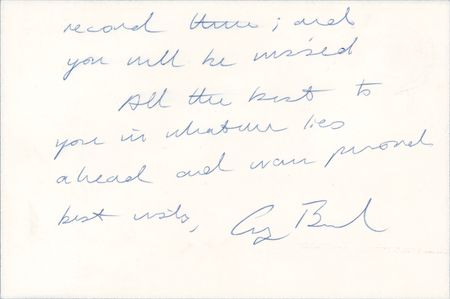 record there; and
you will be missed
All the best to
you in whatever lies
ahead and warm personal
best wishes,